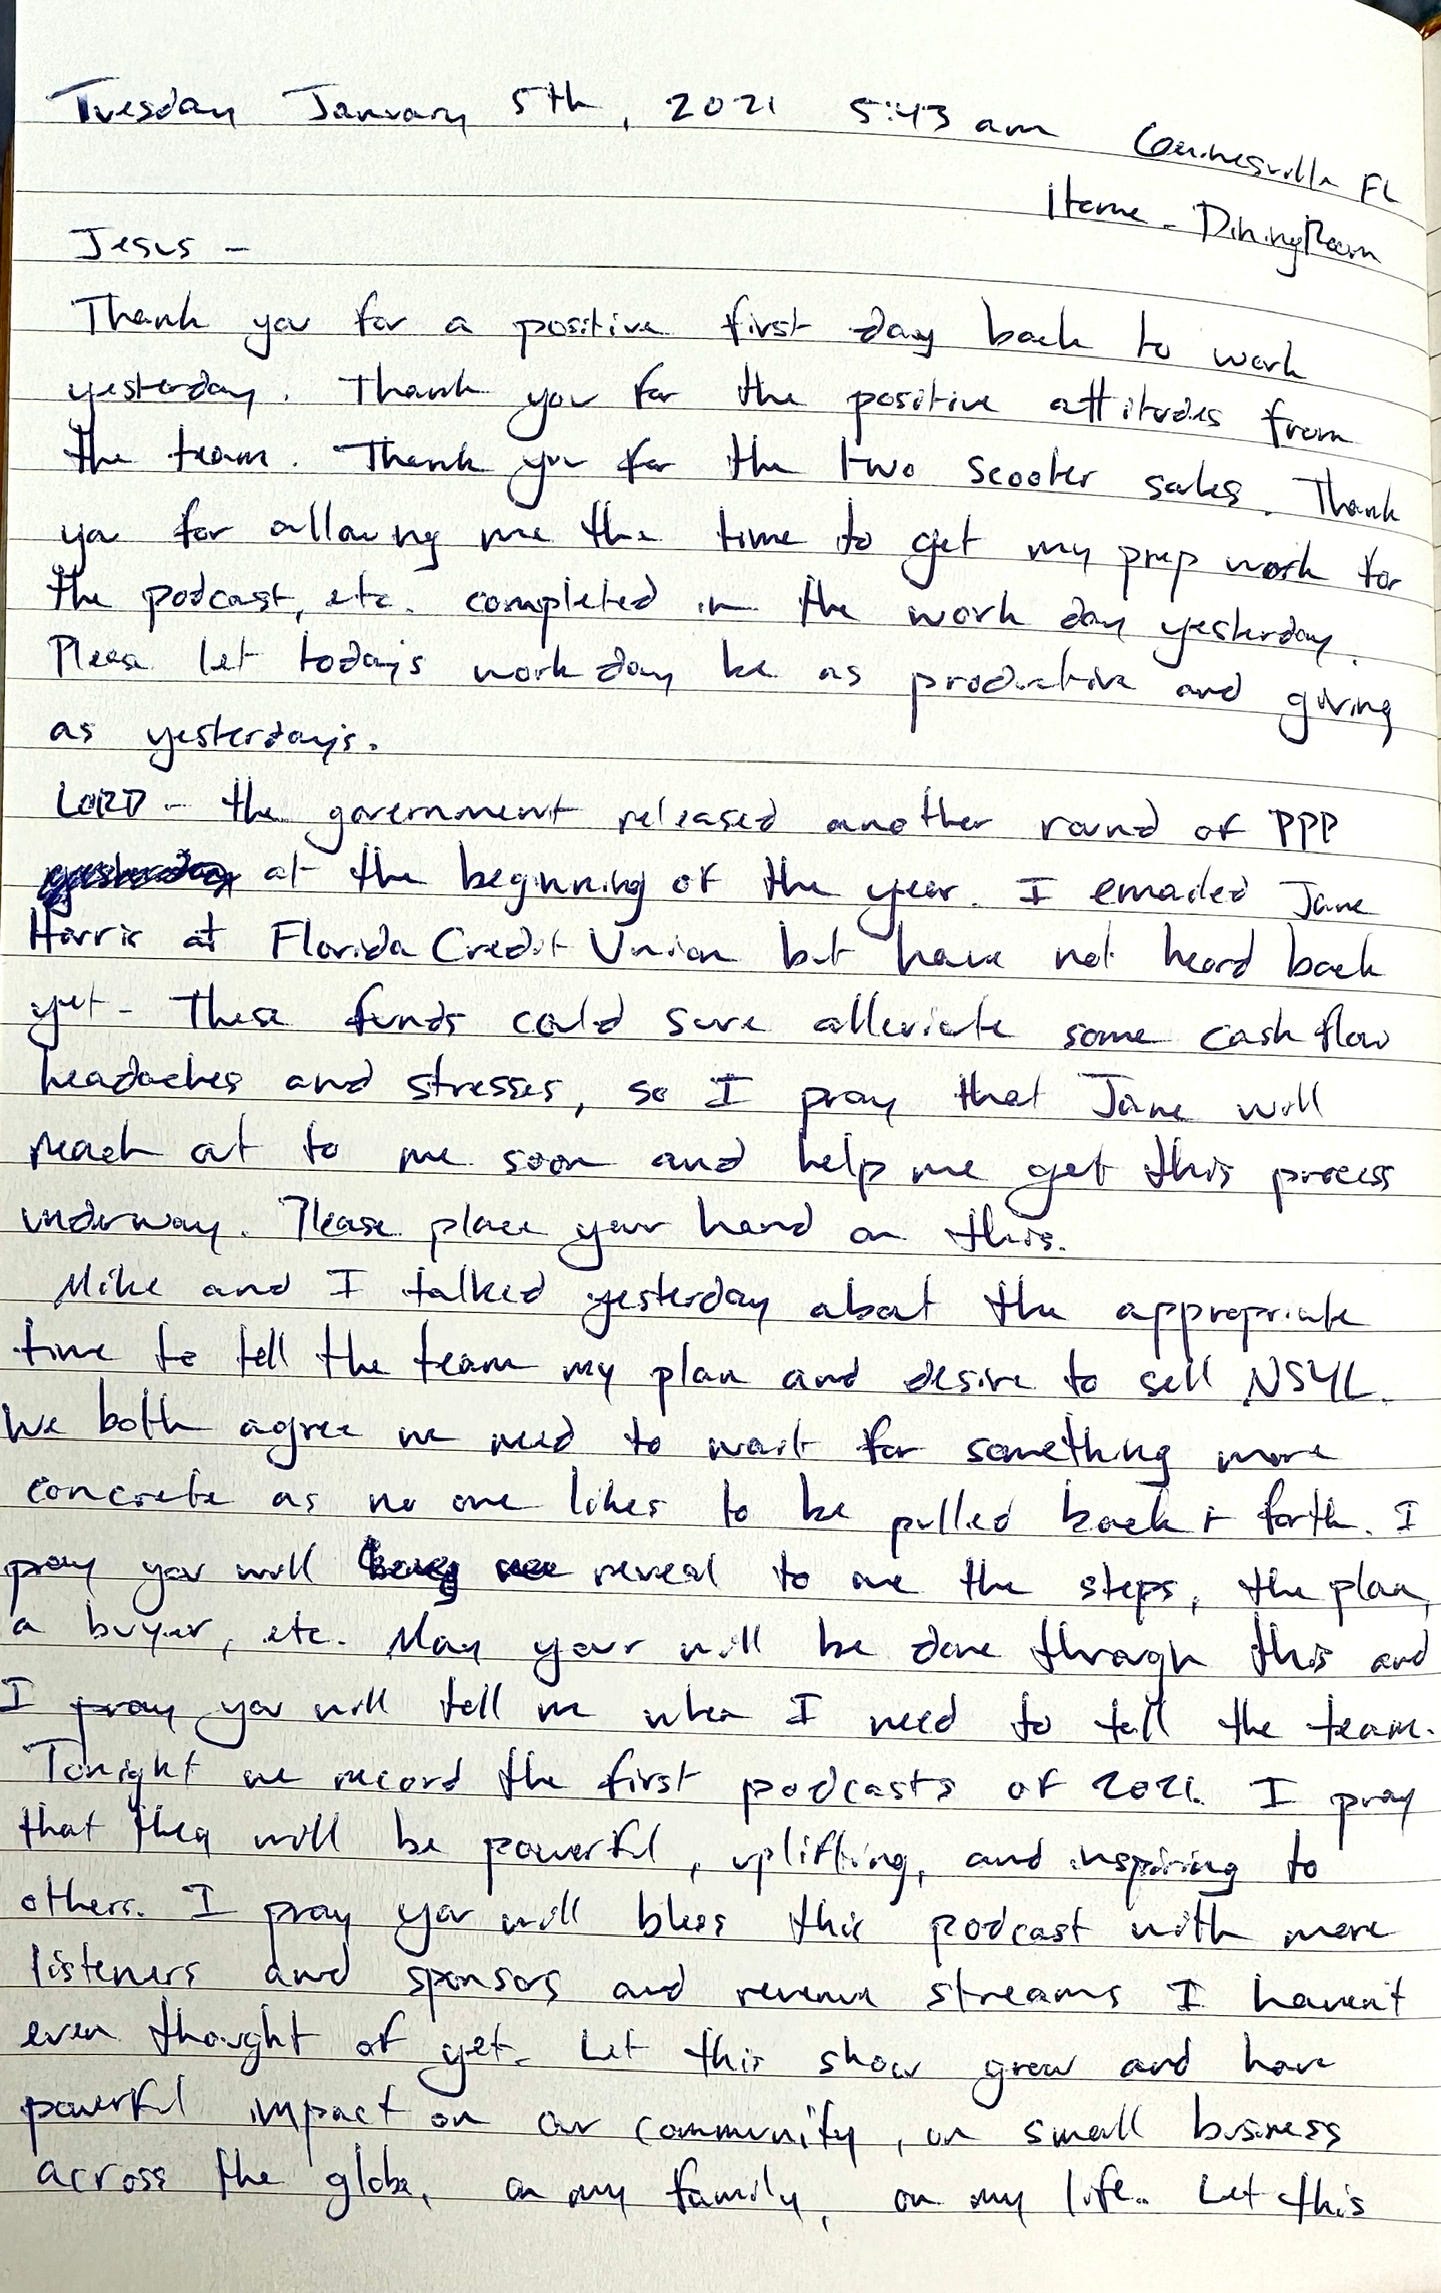 Tuesday January 5th, 2021 5:43 am Gainesville FL
Home - Dining Room
Jesus -
Thank you for a positive first day back to work
yesterday. Thank you for the positive attitudes from
the team. Thank you for the two scooter sales. Thank
you for allowing me the time to get my prep work for
the podcast, etc. completed in the work day yesterday.
Please let today's work day be as productive and giving
as yesterday's.
LORD - the government released another round of PPP
at the beginning of the year. I emailed Jane
Harris at Florida Credit Union but have not heard back
yet - These funds could sure alleviate some cash flow
headaches and stresses, so I pray that Jane will
reach out to me soon and help me get this process
underway. Please place your hand on this.
Mike and I talked yesterday about the appropriate
time to tell the team my plan and desire to sell NSYL.
We both agree we need to wait for something more
concrete as no one likes to be pulled back + forth. I
pray you will reveal to me the steps, the plan,
a buyer, etc. May your will be done through this and
I pray you will tell me when I need to tell the team.
Tonight we record the first podcasts of 2021. I pray
that they will be powerful, uplifting, and inspiring to
others. I pray you will bless this podcast with more
listeners and sponsors and revenue streams I haven't
even thought of yet. Let this show grow and have
powerful impact on our community, on small business
across the globe, on my family, on my life. Let this